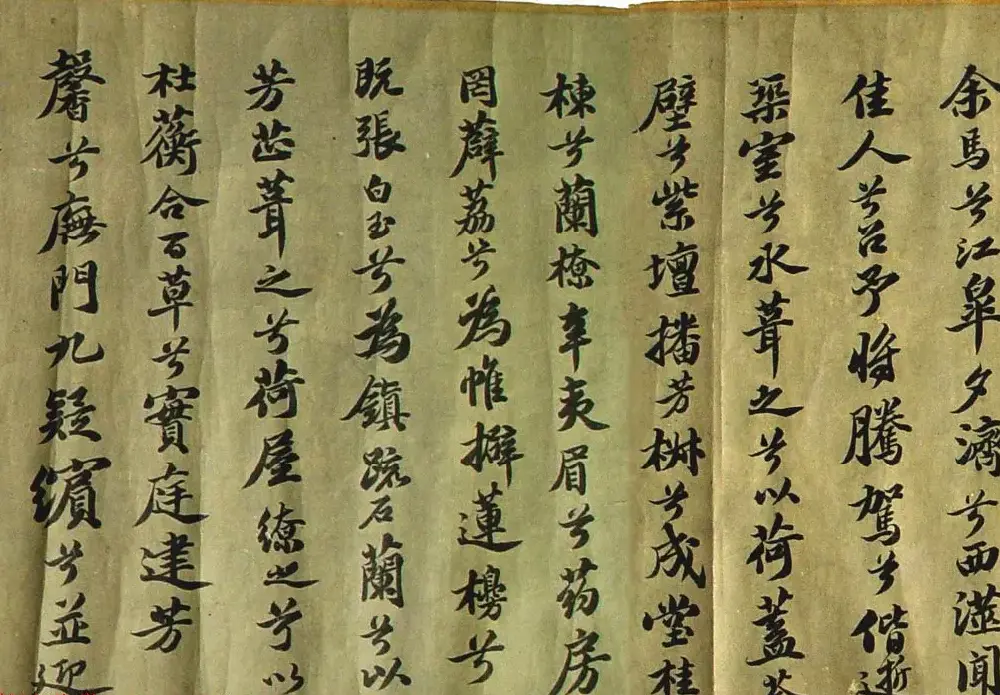 余馬兮江皐夕濟兮西澨聞
佳人兮召予將騰駕兮偕逝
築室兮水葺之兮以荷蓋
壁兮紫壇播芳椒兮成堂桂
棟兮蘭橑辛夷眉兮葯房
罔薜荔兮為帷擗蓮櫋兮
既張白玉兮為鎮疏石蘭兮以
芳芷葺之兮荷屋繚之兮以
杜蘅合百草兮實庭建芳
馨兮廡門九疑繽兮並迎